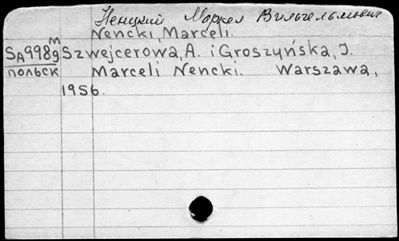 Ненцкий Маркел Вильгельмович
Nencki, Marceli.
SA998м/9 Szwejcerowa, A. i Groszyńska, J.
польск Marceli Nencki. Warszawa,
1956.